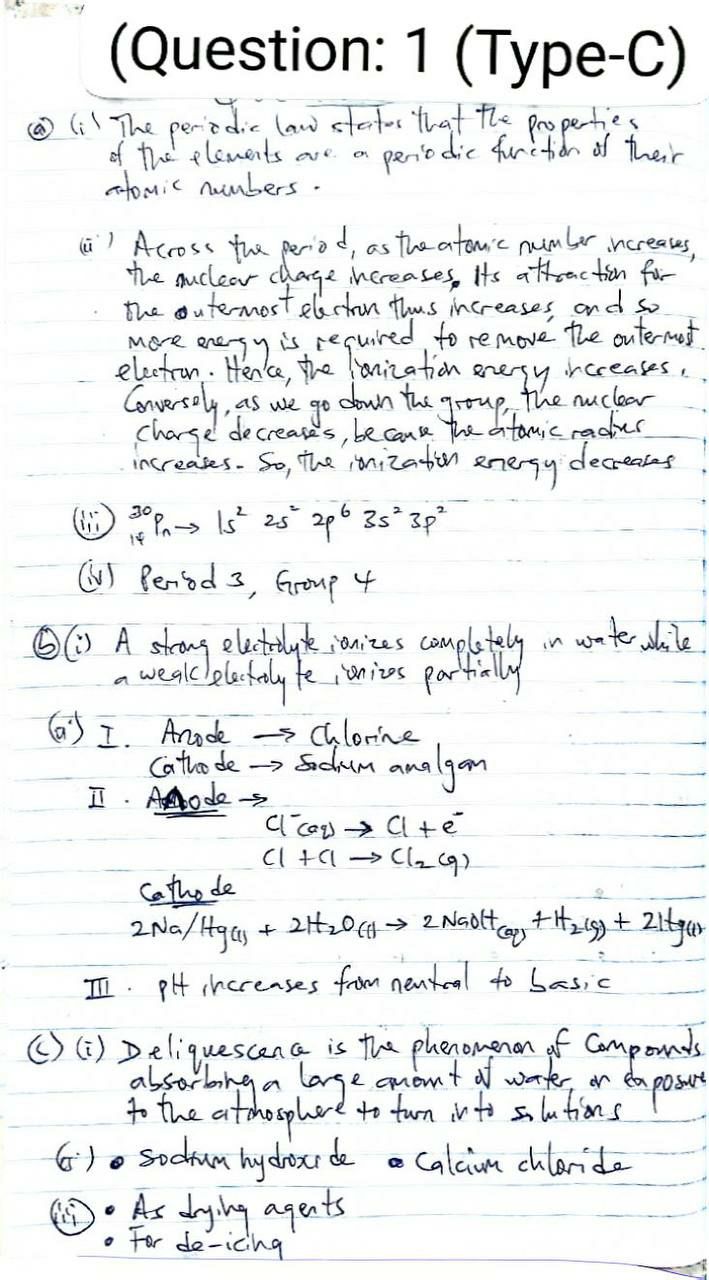 (Question: 1 (Type-C)
(a) (i) The periodic law states that the properties
of the elements are a periodic function of their
atomic numbers.
(ii) Across the period, as the atomic number increases,
the nuclear charge increases. Its attraction for
the outermost electron thus increases, and so
more energy is required to remove the outermost
electron. Hence, the ionization energy increases.
Conversely, as we go down the group, the nuclear
charge decreases, because the atomic radius
increases. So, the ionization energy decreases
(iii) ³⁰₁₄Pn → 1s² 2s² 2p⁶ 3s² 3p²
(iv) Period 3, Group 4
(b) (i) A strong electrolyte ionizes completely in water while
a weak electrolyte ionizes partially
(ii) I. Anode → Chlorine
Cathode → Sodium amalgam
II. Anode →
Cl⁻(aq) → Cl + e⁻
Cl + Cl → Cl₂(g)
Cathode
2Na/Hg(l) + 2H₂O(l) → 2NaOH(aq) + H₂(g) + 2Hg(l)
III. pH increases from neutral to basic
(c) (i) Deliquescence is the phenomenon of Compounds
absorbing a large amount of water on exposure
to the atmosphere to turn into solutions
(ii) • Sodium hydroxide • Calcium chloride
(iii) • As drying agents
• For de-icing